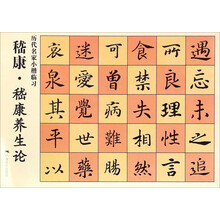 历代名家小楷临习
嵇康·嵇康养生论
所遇未之
而理性言
食禁失相然
可曾病腸
迷愛覺藥
哀其平